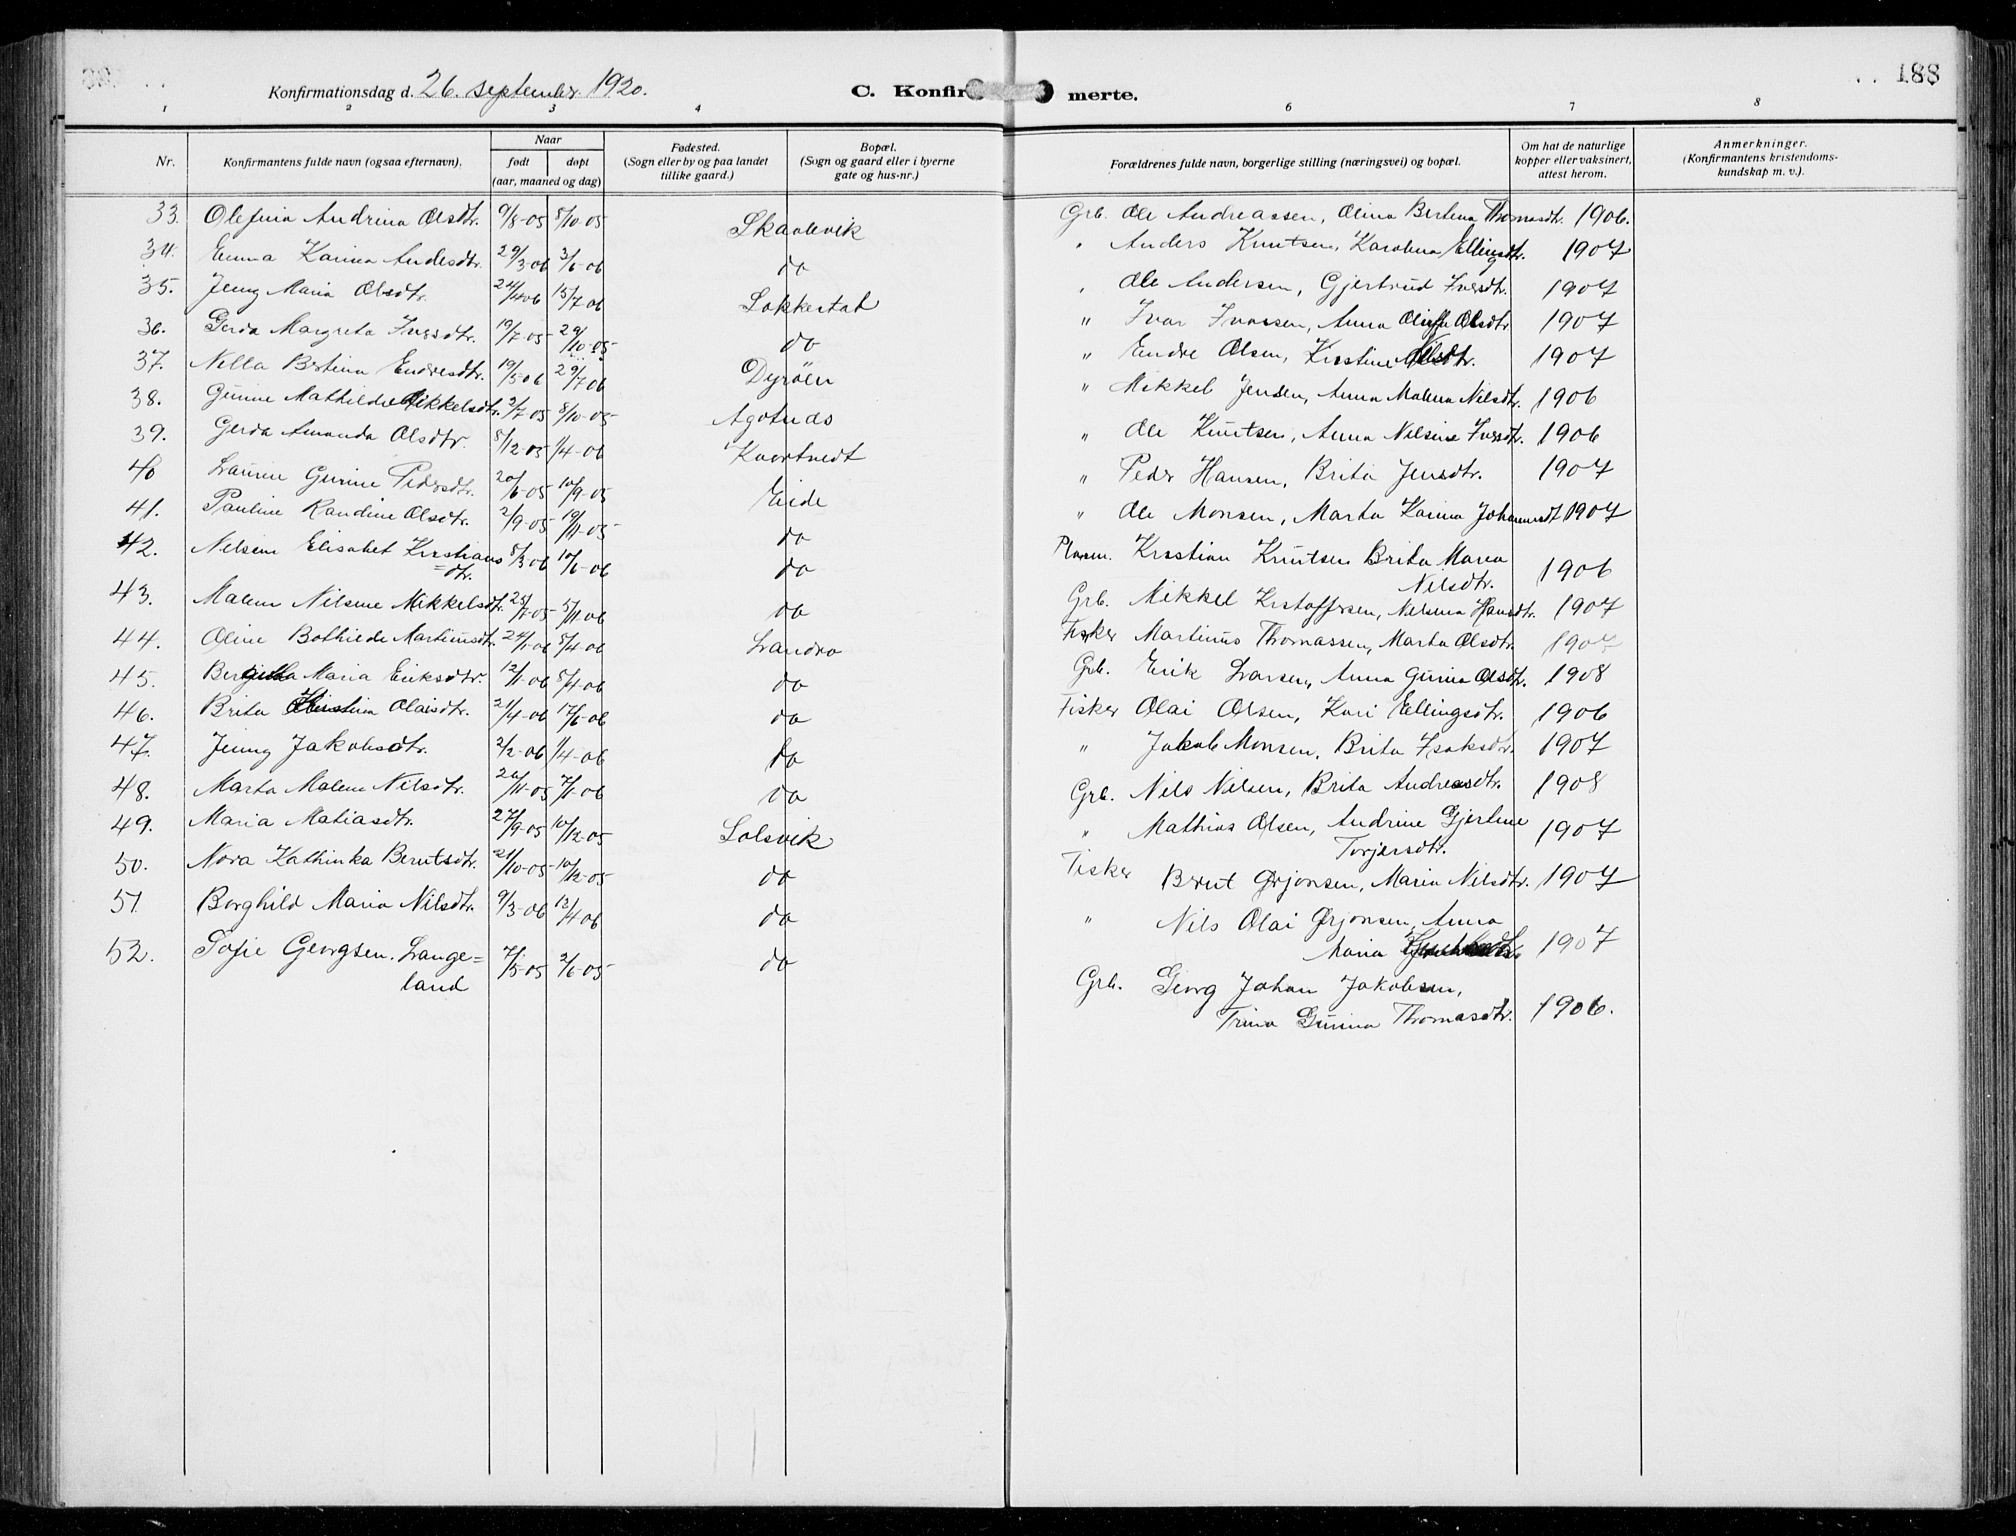 188
Konfirmationsdag d. 26. september 1920. C. Konfirmerte.
1 2 3 4 6 7 8
Nr. Konfirmantens fulde navn (ogsaa efternavn). Naar født døpt (aar, maaned og dag) Fødested. (Sogn eller by og paa landet tillike gaard.) Bopæl. (Sogn og gaard eller i byerne gate og hus-nr.) Forældrenes fulde navn, borgerlige stilling (næringsvei) og bopæl. Om hat de naturlige kopper eller vaksinert, attest herom. Anmerkninger. (Konfirmantens kristendomskundskap m. v.).
33. Olefina Andrina Olsdtr. 9/8-05 8/10-05 Skaalevik Grb. Ole Andreassen, Olina Bertina Thomasdtr. 1906.
34. Emma Karina Andersdtr. 29/3-06 3/6-06 do " Anders Knutsen, Karolina Ellingsdtr. 1907
35. Jenny Maria Olsdtr. 24/4 06 15/7 06 Lokkestad " Ole Andersen, Gjertrud Iversdtr. 1907
36. Gerda Margreta Iversdtr. 19/7-05 29/10-05 do " Ivar Ivarsen, Anna Olsdtr 1907
37. Nella Bertina Endresdtr. 19/5-06 29/7 06 Dyröen " Endre Olsen, Kristine 1907
38. Gurine Mathilde Mikkelsdtr. 2/7-05 8/10-05 Agotnes " Mikkel Jensen, Anna Malena Nilsdtr. 1906
39. Gerda Amanda Olsdtr. 8/12-05 1/4-06 Kvertvedt " Ole Knutsen, Anna Nilsine Iversdtr. 1906
40 Laurine Gurine Pedersdtr. 20/6-05 10/9-05 Eide " Peder Hansen, Brita Jensdtr. 1907
41. Pauline Randine Olsdtr. 2/9-05 19/11-05 do " Ole Monsen, Marta Karina Johannesdt 1907
42. Nilsine Elisabet Kristians=dtr. 8/3-06 10/6-06 do Kristian Knutsen Brita Maria Nilsdtr. 1906
43. Malene Nilsine Mikkelsdtr. do Grb. Mikkel Kristoffersen, Nilsina Hansdtr. 1907
44. Oline Bothilde Martinusdtr. 24/1-06 8/4-06 Landro Fisker Martinus Thomassen, Marta Olsdtr.
45. Maria Eriksdtr. 12/1-06 8/4-06 do Grb. Erik Larsen, Anna Gurina Olsdtr. 1908
46. Brita Kristina Olaisdtr. 21/4-06 17/6-06 do Fisker Olai Olsen, Kari Ellingsdtr. 1906
47. Jenny Jakobsdtr. 2/2-06 1/4-06 do " Jakob Monsen, Brita Isaksdtr. 1907
48. Marta Malene Nilsdtr. 26/11-05 7/1-06 do Grb. Nils Nilsen, Brita Andreasdtr. 1908
49. Maria Matiasdtr. 27/9-05 10/12-05 Solsvik " Mathias Olsen, Andrine Gjertine Torjersdtr. 1907
50. Nora Kathinka Berntsdtr. 21/10-05 10/12-05 do Fisker Bernt Ørjonsen, Maria Nilsdtr. 1907
51 Borghild Maria Nilsdtr. 9/3-06 13/4 06 do " Nils Olai Ørjonsen, Anna Maria 1907
52. Sofie Georgsen. Lange=land 7/5-05 2/6-05 do Grb. Georg Johan Jakobsen, Trina Gurina Thomasdtr. 1906.